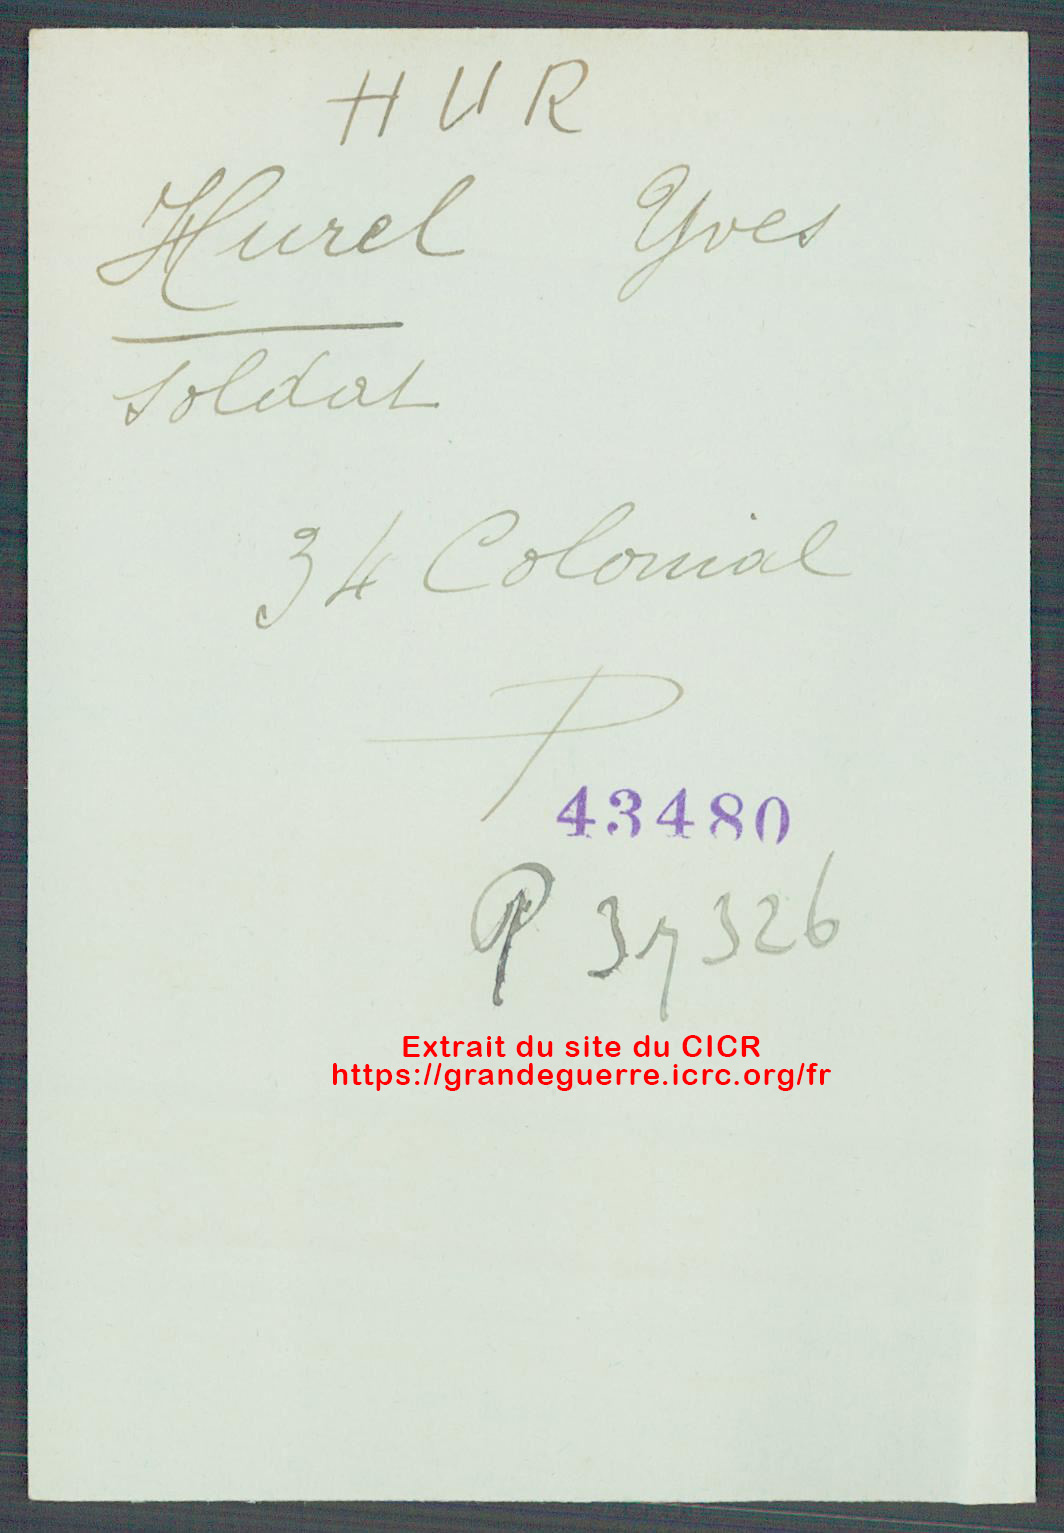 HUR
Hurel Yves
soldat
34 Colonial
P
43480
P 37326
Extrait du site du CICR
https://grandeguerre.icrc.org/fr